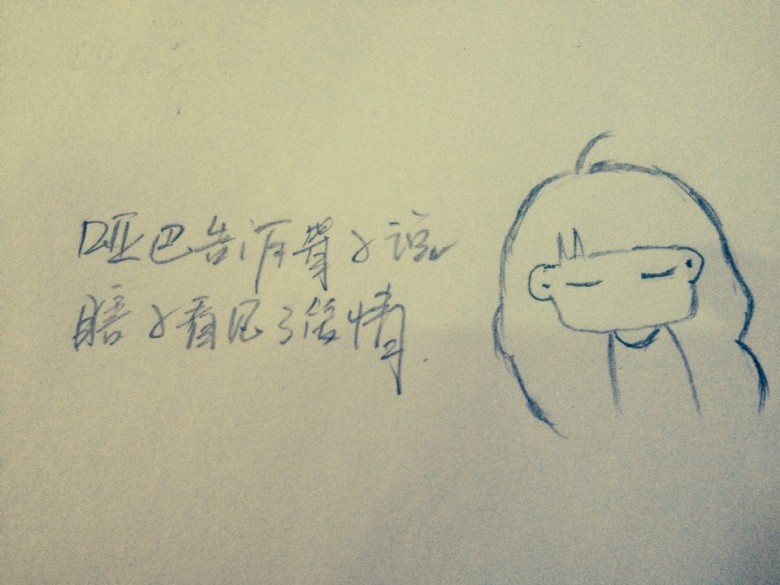 哑巴告诉聋子说
瞎子看见了爱情